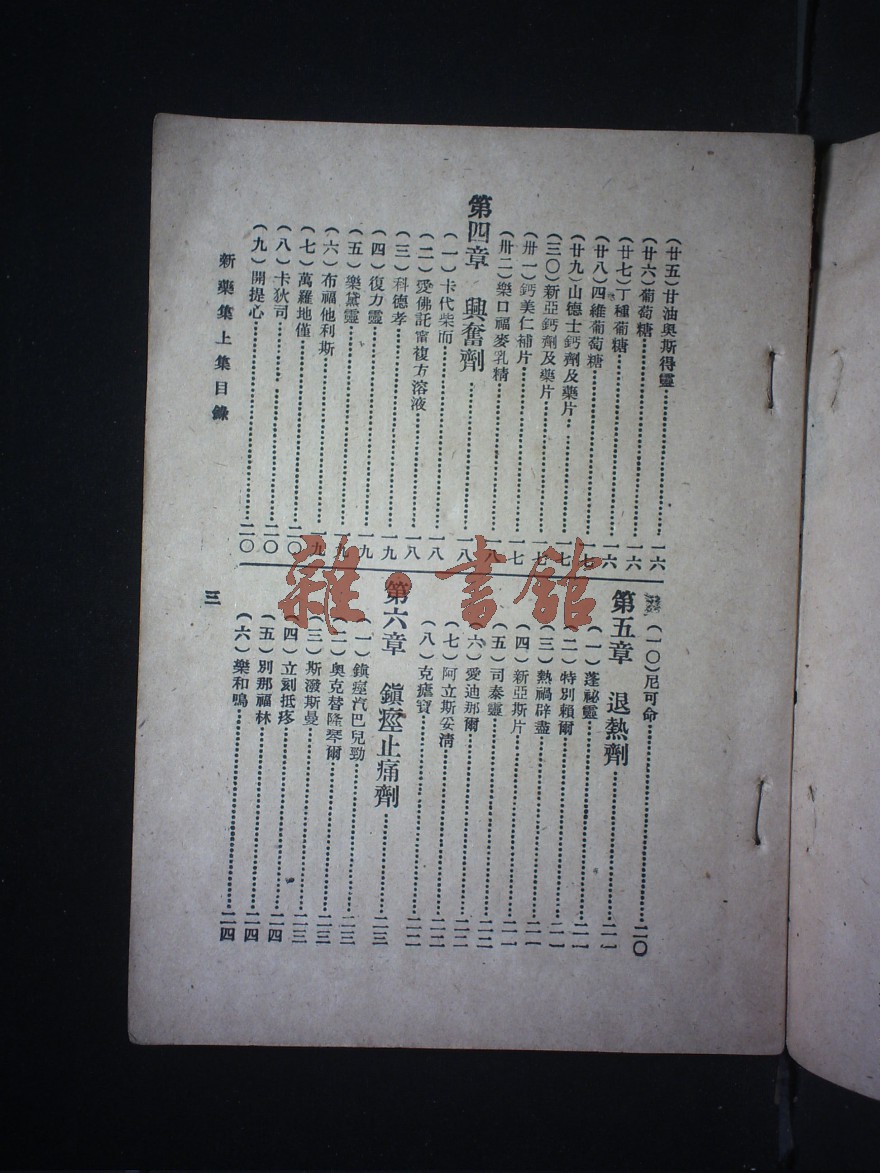 (廿五)甘油奥斯得靈……一六
(廿六)葡萄糖……一六
(廿七)丁種葡糖……一六
(廿八)四維葡萄糖……一七
(廿九)山德士鈣劑及藥片……一七
(三〇)新亞鈣劑及藥片……一七
(卅一)鈣美仁補片……一七
(卅二)樂口福麥乳精……一八
第四章 興奮劑……一八
(一)卡代柴而……一八
(二)愛佛託甯複方溶液……一八
(三)科德孝……一九
(四)復力靈……一九
(五)樂黛靈……一九
(六)布福他利斯……一九
(七)萬羅地僅……二〇
(八)卡狄司……二〇
(九)開提心……二〇
新藥集上集目錄
(一〇)尼可命……二〇
第五章 退熱劑……二一
(一)蓬祕靈……二一
(二)特別賴爾……二一
(三)熱禍辟盡……二一
(四)新亞斯片……二一
(五)司泰靈……二二
(六)愛迪那爾……二二
(七)阿立斯妥淸……二二
(八)克瘧寶……二二
第六章 鎭痙止痛劑……二三
(一)鎭痙汽巴兒勁……二三
(二)奥克替隆琴爾……二三
(三)斯潑斯曼……二三
(四)立刻抵疼……二四
(五)別那福林……二四
(六)樂和鳴……二四
三
雜·書館